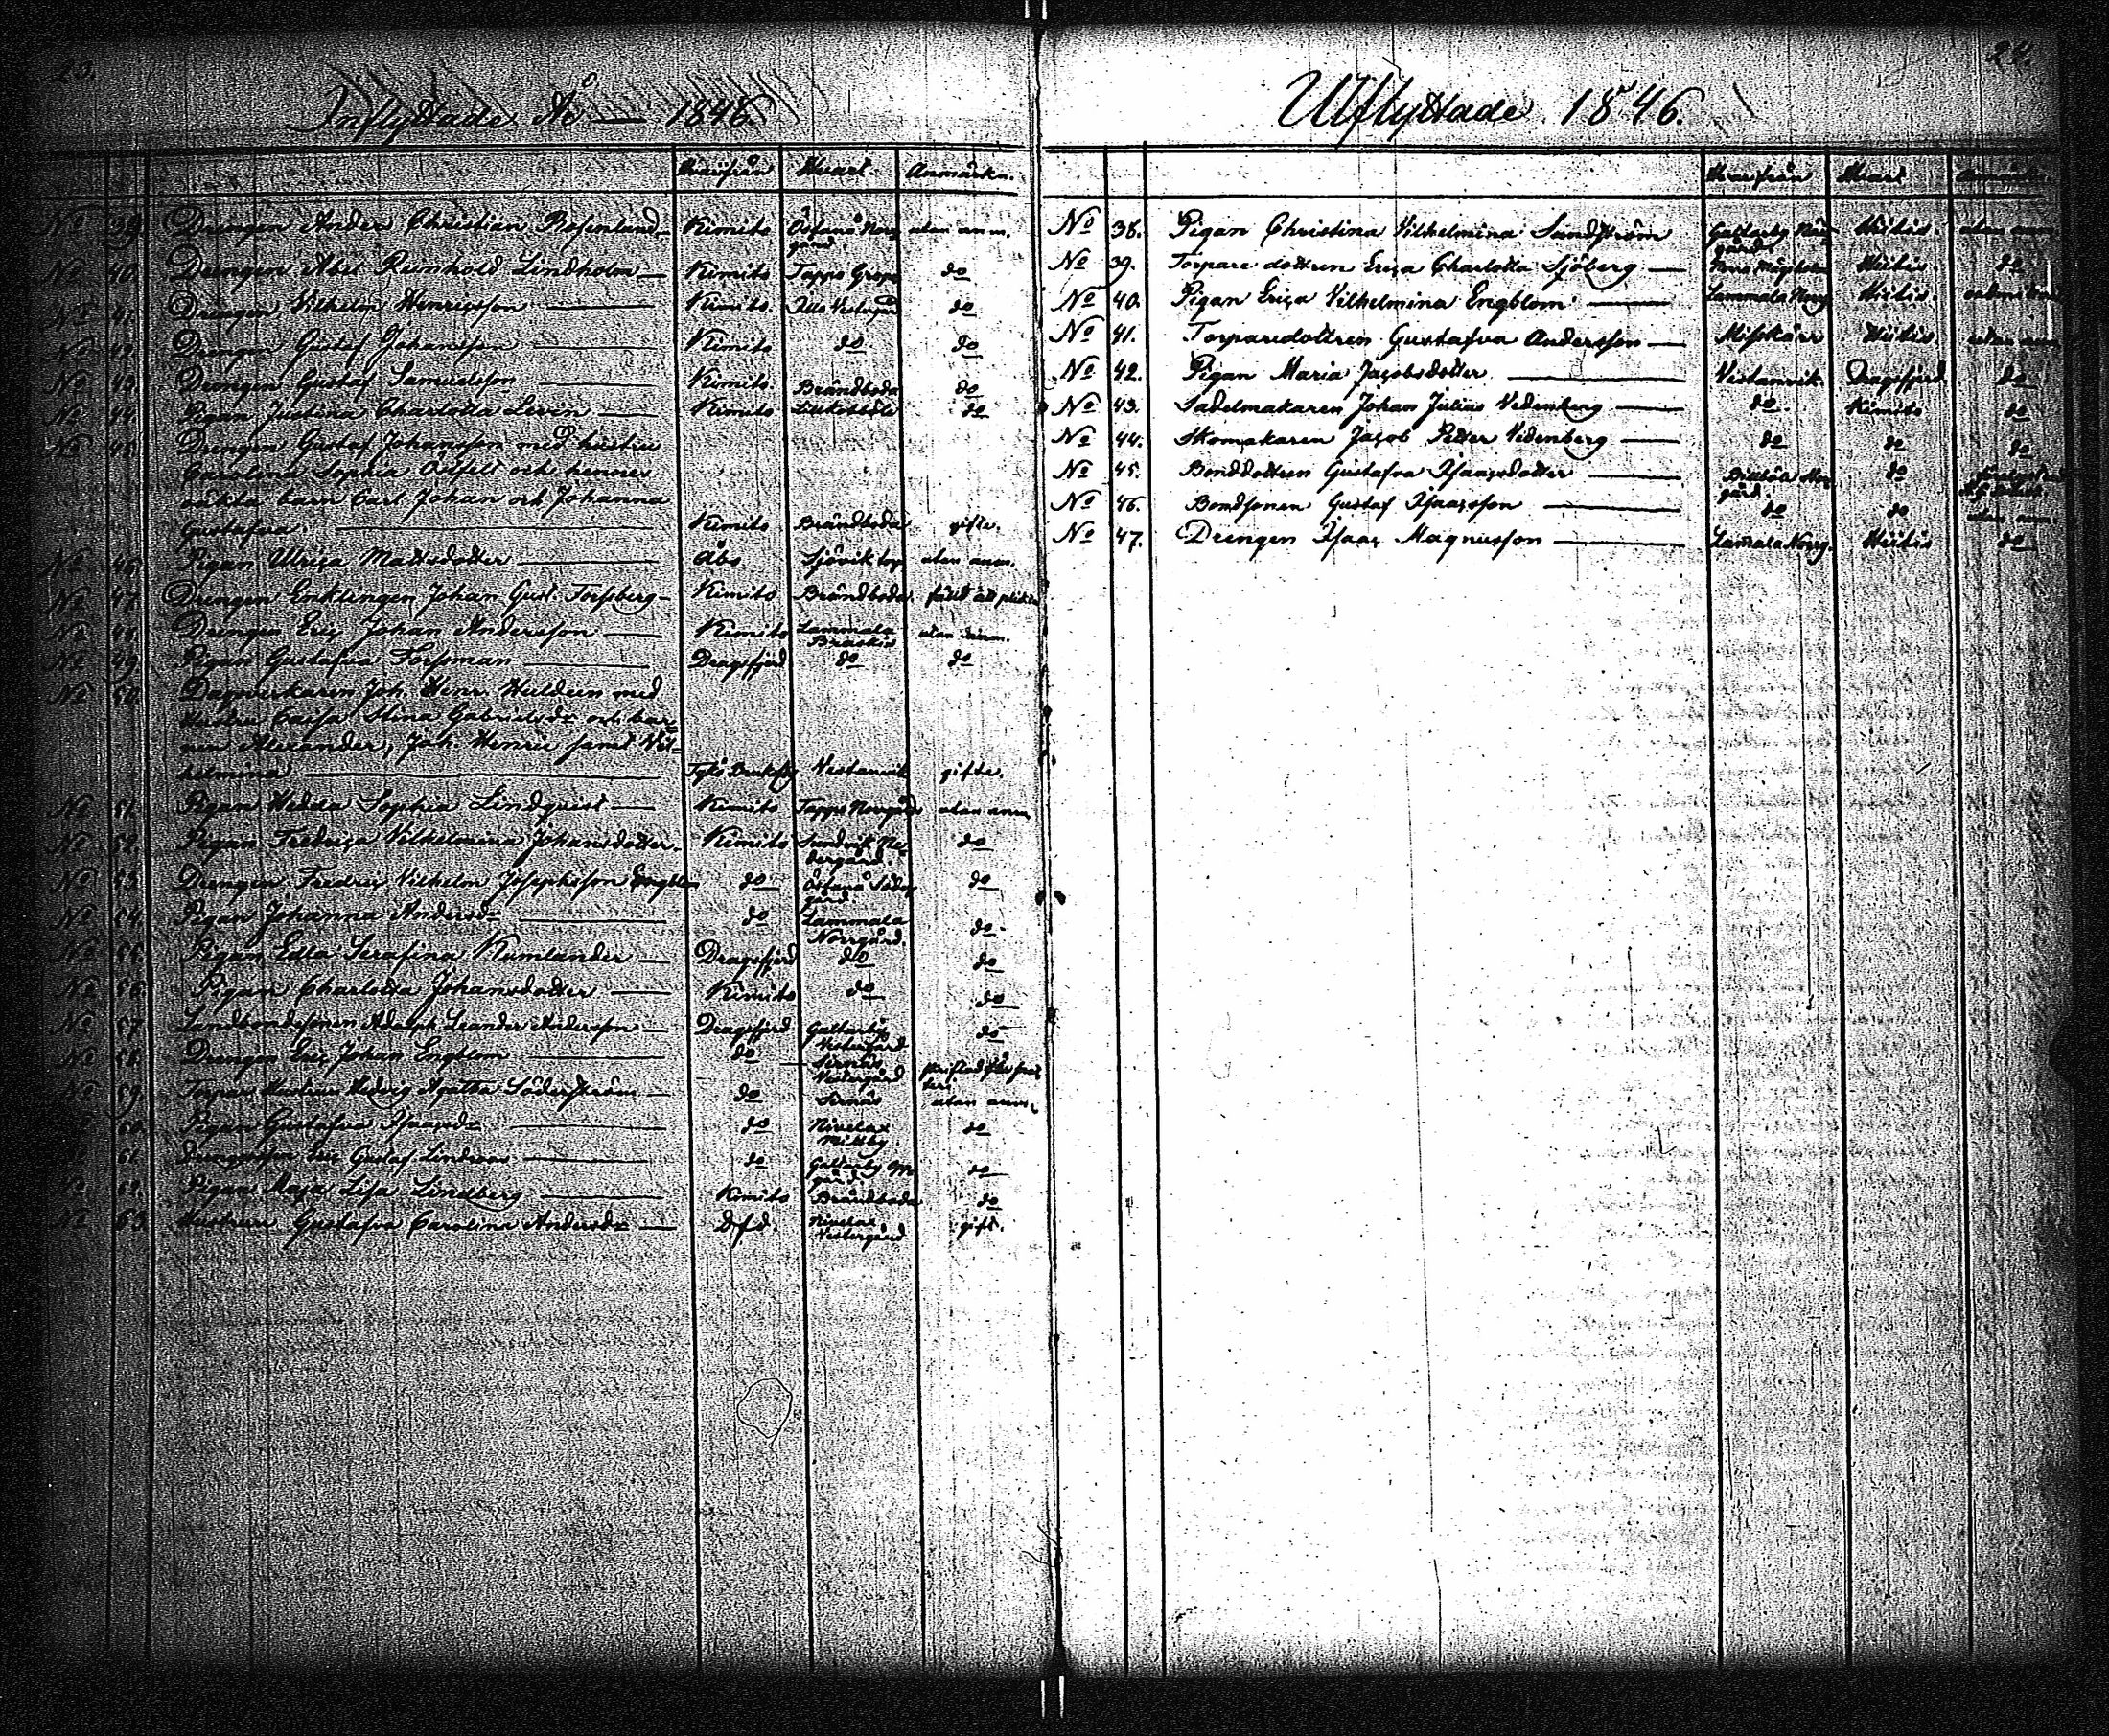 23.
Inflyttade År 1846.
Hvarifrån Hvart. Anmärkn.
No 39. Drengen Anders Christian Rosenlund Kimito Östanå Norr gård. utan anm.
No 40. Drengen Abel Reinhold Lindholm Kimito Tappo Grops do
No 41. Drengen Vilhelm Henricsson Kimito. Illo Vestergård do
No 42. Drengen Gustaf Johansson Kimito do do
No 43. Drengen Gustaf Samuelsson Kimito. Brändboda do
No 44. Pigan Justina Charlotta Levin Kimito do
No 45. Drengen Gustaf Johansson med hustru
Carolina Sophia och hennes
oäkta barn Carl Johan och Johanna
Gustafva. Kimito. Brändboda gifte.
No 46. Pigan Ulrica Mattsdotter Åbo Sjövik torp utan anm.
No 47. Drengen Enklingen Johan Gust. Forsberg Kimito Brändboda
No 48. Drengen Eric Johan Andersson Kimito Lammala utan anm.
No 49. Pigan Gustafva Forsman Dragsfjerd do do
No 50. Dagsverkaren Joh. Henr. Huldeen med
Hustru Caisa Stina Gabrielsdr och bar
nen Alexander, Joh. Henric samt Vil=
helmina Tykö Bruksförs. Vestanvik gifte.
No 51. Pigan Hedda Sophia Lindquist Kimito Tappo Norrgård utan anm.
No 52. Pigan Fredrica Vilhelmina Johansdotter. Kimito Sundvik Ne dergård. do
No 53. Drengen Fredric Vilhelm Josephsson Engblom do Östanå Söder gård. do
No 54. Pigan Johanna Andersdr do Lammala Norrgård. do
No 55. Pigan Edla Serafina Kumlander Dragsfjerd do do
No 56. Pigan Charlotta Johansdotter Kimito do do
No 57. Landbondesonen Adolph Leander Andersson Dragsfjerd Galtarby Vestergård do
No 58. Drengen Eric Johan Engblom do Vestergård
No 59. Torpar Hustrun Hedvig Agatha Söderström do utan anm.
No 60. Pigan Gustafva Isaacsdr do Nivelax Millby do
No 61. Eric Gustaf Lindroos do Galtarby do
No 62. Pigan Maja Lisa Lindberg Kimito Brändboda do
No 63. Hustrun Gustafva Carolina Andersdr D.f.d. Nivelax Vestergård gift.
24.
Utflyttade 1846.
Hvarifrån Hvart Anmärkn.
No 38. Pigan Christina Vilhelmina Sandström Galtarby gård Hiitis. utan anm.
No 39. Torpare dottren Erica Charlotta Sjöberg Hiitis. do
No 40. Pigan Erica Vilhelmina Engblom Lammala Norrg Hiitis.
No 41. Torparedottren Gustafva Andersson Misskärr Hiitis utan anm
No 42. Pigan Maria Jacobsdotter Vestanvik. Dragsfjerd. do
No 43. Sadelmakaren Johan Julius Vedenberg do. Kimito do
No 44. Skomakaren Jacob Petter Vedenberg do do do
No 45. Bonddottren Gustafva Isaacsdotter gård. do
No 46. Bondsonen Gustaf Isaacsson do do utan anm.
No 47. Drengen Isaac Magnusson Lammala Norrg. Hiitis do